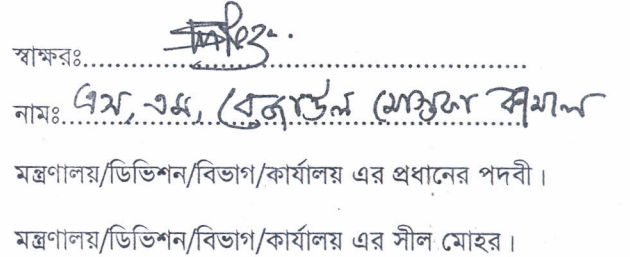 স্বাক্ষরঃ....................................................
নামঃ এস, এম, রেজাউল মোস্তফা কামাল
মন্ত্রণালয়/ডিভিশন/বিভাগ/কার্যালয় এর প্রধানের পদবী।
মন্ত্রণালয়/ডিভিশন/বিভাগ/কার্যালয় এর সীল মোহর।